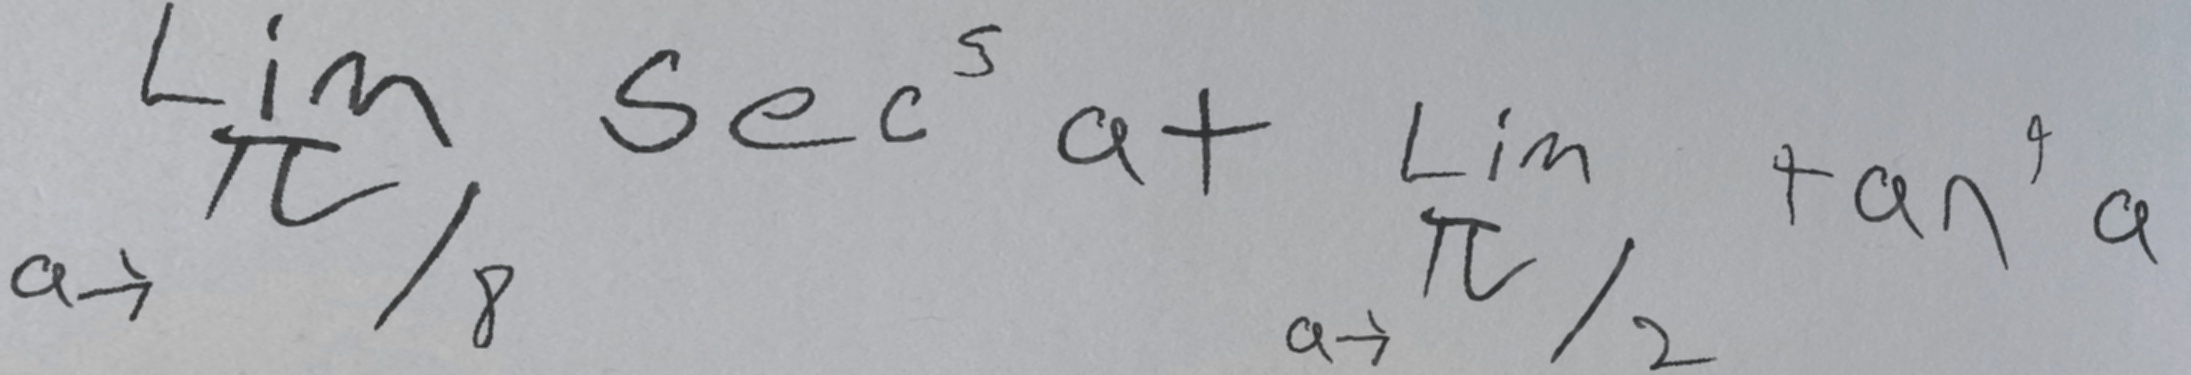 Lim a→π/8 sec⁵ a + Lim a→π/2 tan⁴ a